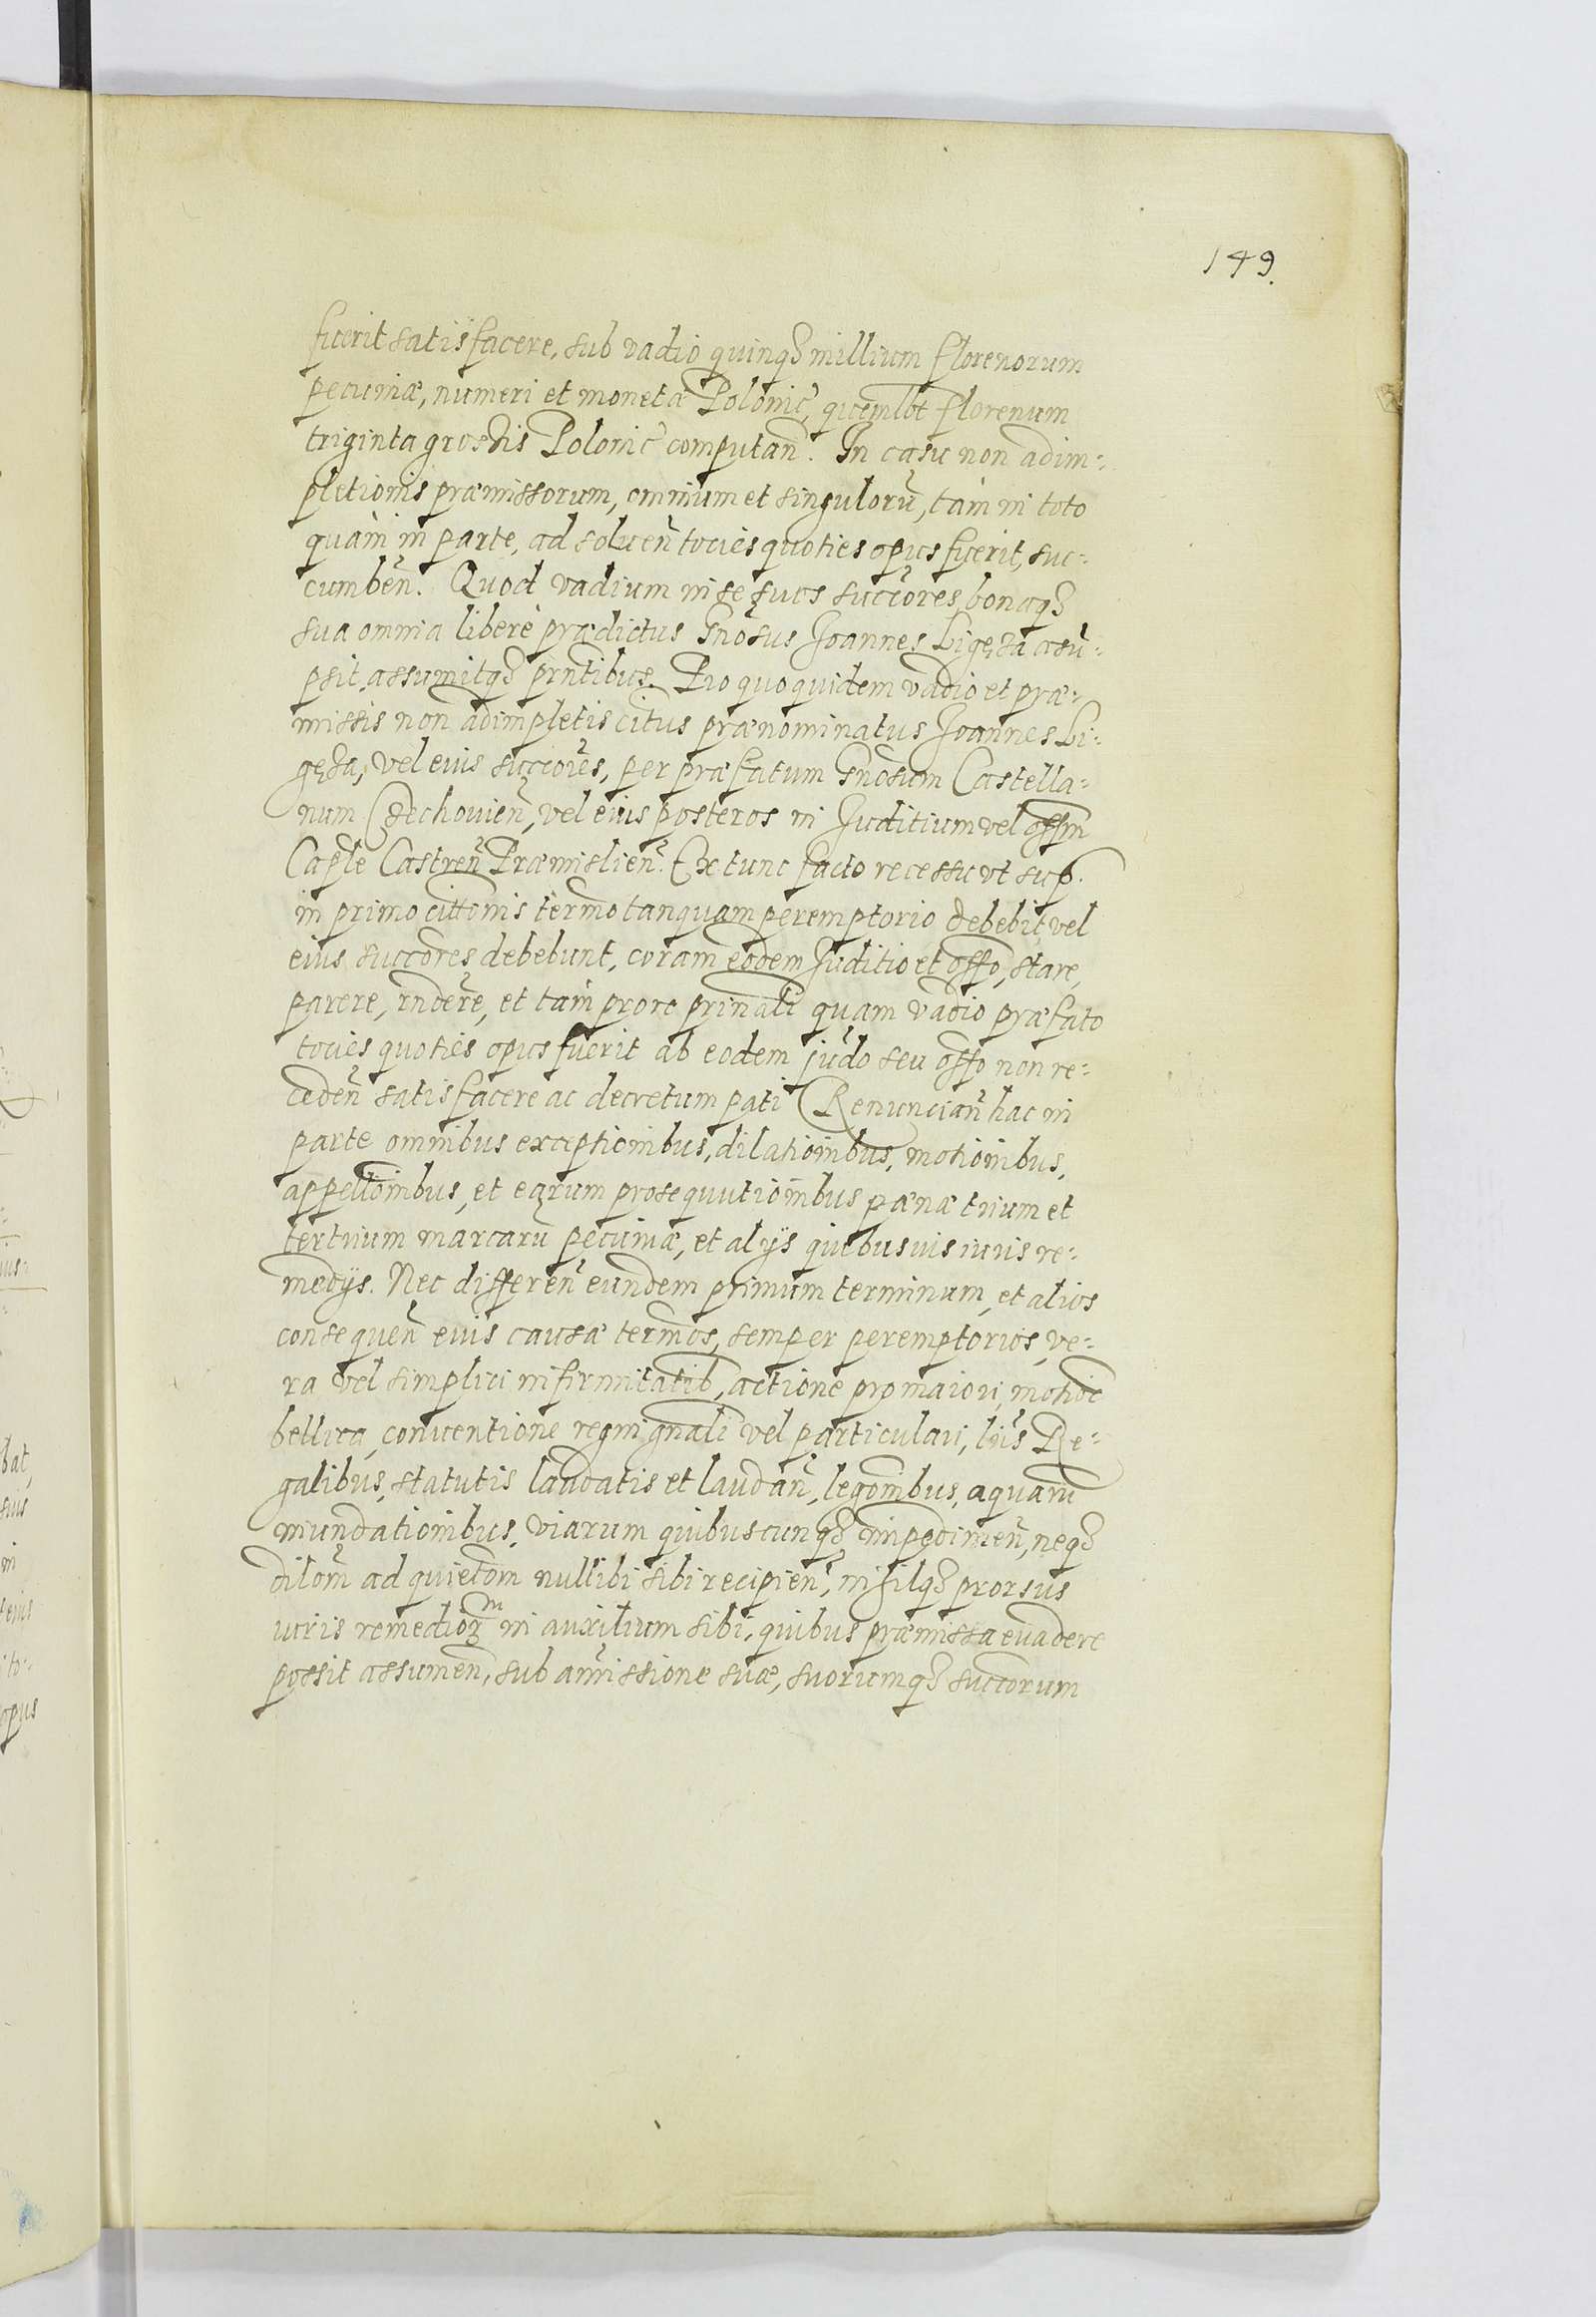 149.
fuerit satisfacere, sub vadio quinq3 millium florenorum
pecuniæ, numeri et monetæ Polonic̃, quemlbt florenum
triginta grossis Polonic̃ computañ. In casu non adim:
pletionis præmissorum, omnium et singulorũ, tàm in toto
quàm in parte, ad soluen̄ tocies quoties opus fuerit, suc:
cumben̄. Quod vadium in se suos succõres bonaq3
sua omnia liberè prædictus Gñosus Joannes Ligęza asũ:
psit assumitq3 prñtibus. Pro quo quidem vadio et præ:
missis non adimpletis citus prænominatus Joannes Li:
gęza, vel eius succões, per præfatum Gñosum Castella:
num Czechouien̄, vel eius posteros in Juditium vel offm
Caple Castren̄ Præmislien̄. Ex tunc facto recessu vt sup.
in primo cittõnis termõ tanquam peremptorio debebit, vel
eius succõres debebunt, coram eodem Juditio et offõ, stare,
parere, rñdere, et tàm pro re prinãli quam vadio præfato
tocies quoties opus fuerit ab eodem judõ seu offo non re:
ceden̄ satisfacere ac decretum pati Renuncian̄ hac in
parte omnibus exceptionibus, dilationibus, motionibus,
appellõnibus, et earum prosequutionibus pœnæ trium et
tertrium marcarũ pecuniæ, et alijs quibusuis iuris re:
medijs. Nec differen̄ eundem primum terminum, et alios
consequen̄ eius causæ termõs, semper peremptorios, ve:
ra vel simplici infirmitatib, actione pro maiori, motiõe
bellica, conuentione regni gnãli vel particulari, lr̃is Re:
galibus, statutis laudatis et laudan̄, legõnibus, aquarũ
inundationibus, viarum quibuscunq3 impedimen̄, neq3
dilõm ad quietõm nullibi sibi recipien̄, nihilq3 prorsus
iuris remedioꝝ in auxilium sibi, quibus præmissa euadere
possit assumen̄, sub amissione suæ, suorumq3 succõrum